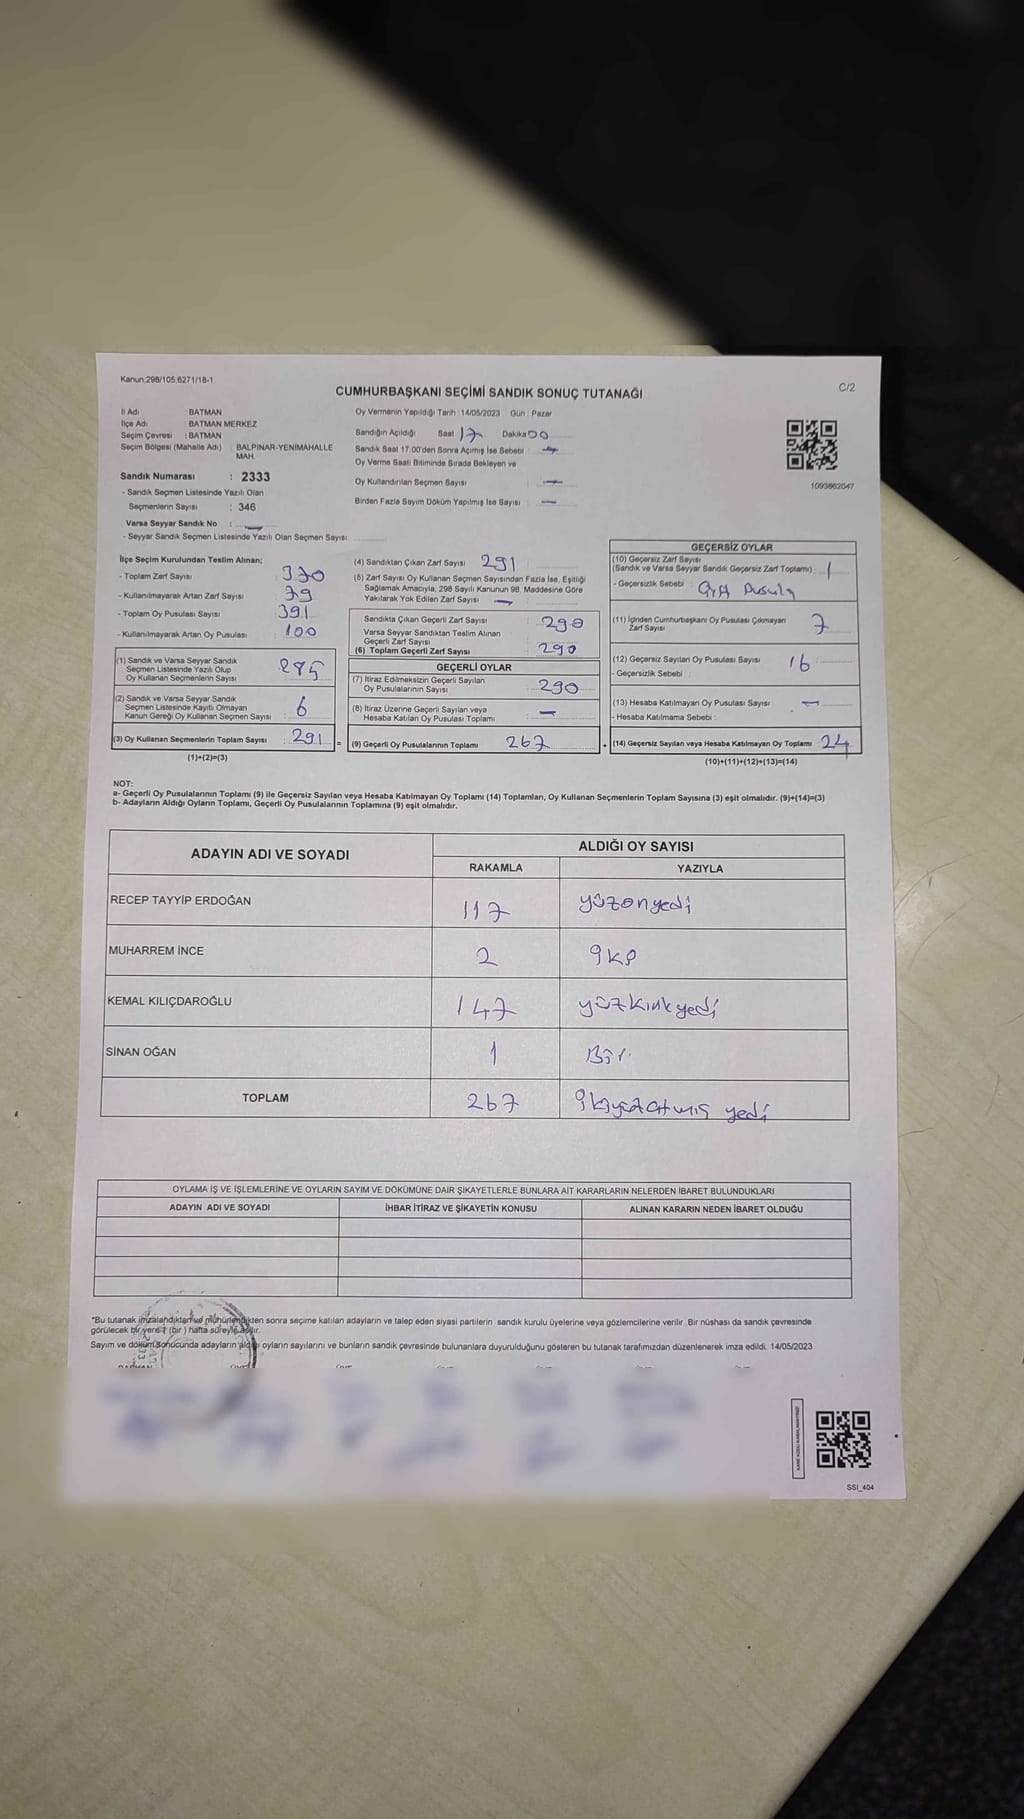 Kanun:298/105,6271/18-1
C/2
CUMHURBAŞKANI SEÇİMİ SANDIK SONUÇ TUTANAĞI
İl Adı : BATMAN
İlçe Adı : BATMAN MERKEZ
Seçim Çevresi : BATMAN
Seçim Bölgesi (Mahalle Adı) BALPINAR-YENİMAHALLE
MAH.
Sandık Numarası : 2333
- Sandık Seçmen Listesinde Yazılı Olan
Seçmenlerin Sayısı : 346
Varsa Seyyar Sandık No : —
- Seyyar Sandık Seçmen Listesinde Yazılı Olan Seçmen Sayısı
Oy Vermenin Yapıldığı Tarih : 14/05/2023 Gün : Pazar
Sandığın Açıldığı Saat 17 Dakika 00
Sandık Saat 17.00'den Sonra Açımış İse Sebebi —
Oy Verme Saati Bitiminde Sırada Bekleyen ve
Oy Kullandırılan Seçmen Sayısı —
Birden Fazla Sayım Döküm Yapılmış İse Sayısı —
1093862047
İlçe Seçim Kurulundan Teslim Alınan;
- Toplam Zarf Sayısı : 370
- Kullanılmayarak Artan Zarf Sayısı : 79
- Toplam Oy Pusulası Sayısı : 391
- Kullanılmayarak Artan Oy Pusulası : 100
(1) Sandık ve Varsa Seyyar Sandık
Seçmen Listesinde Yazılı Olup
Oy Kullanan Seçmenlerin Sayısı 285
(2) Sandık ve Varsa Seyyar Sandık
Seçmen Listesinde Kayıtlı Olmayan
Kanun Gereği Oy Kullanan Seçmen Sayısı 6
(3) Oy Kullanan Seçmenlerin Toplam Sayısı 291 =
(1)+(2)=(3)
(4) Sandıktan Çıkan Zarf Sayısı 291
(5) Zarf Sayısı Oy Kullanan Seçmen Sayısından Fazla İse, Eşitliği
Sağlamak Amacıyla, 298 Sayılı Kanunun 98. Maddesine Göre
Yakılarak Yok Edilen Zarf Sayısı —
Sandıkta Çıkan Geçerli Zarf Sayısı : 290
Varsa Seyyar Sandıktan Teslim Alınan
Geçerli Zarf Sayısı
(6) Toplam Geçerli Zarf Sayısı : 290
GEÇERLİ OYLAR
(7) İtiraz Edilmeksizin Geçerli Sayılan
Oy Pusulalarının Sayısı : 290
(8) İtiraz Üzerine Geçerli Sayılan veya
Hesaba Katılan Oy Pusulası Toplamı : —
(9) Geçerli Oy Pusulalarının Toplamı 267 +
GEÇERSİZ OYLAR
(10) Geçersiz Zarf Sayısı
(Sandık ve Varsa Seyyar Sandık Geçersiz Zarf Toplamı) : 1
- Geçersizlik Sebebi : Pusula
(11) İçinden Cumhurbaşkanı Oy Pusulası Çıkmayan
Zarf Sayısı 7
(12) Geçersiz Sayılan Oy Pusulası Sayısı 16
- Geçersizlik Sebebi :
(13) Hesaba Katılmayan Oy Pusulası Sayısı : —
- Hesaba Katılmama Sebebi :
(14) Geçersiz Sayılan veya Hesaba Katılmayan Oy Toplamı : 24
(10)+(11)+(12)+(13)=(14)
NOT:
a- Geçerli Oy Pusulalarının Toplamı (9) ile Geçersiz Sayılan veya Hesaba Katılmayan Oy Toplamı (14) Toplamları, Oy Kullanan Seçmenlerin Toplam Sayısına (3) eşit olmalıdır. (9)+(14)=(3)
b- Adayların Aldığı Oyların Toplamı, Geçerli Oy Pusulalarının Toplamına (9) eşit olmalıdır.
ADAYIN ADI VE SOYADI ALDIĞI OY SAYISI
RAKAMLA YAZIYLA
RECEP TAYYİP ERDOĞAN 117 yüzonyedi
MUHARREM İNCE 2 iki
KEMAL KILIÇDAROĞLU 147 yüzkırkyedi
SİNAN OĞAN 1 Bir
TOPLAM 267 ikiyüzatmış yedi
OYLAMA İŞ VE İŞLEMLERİNE VE OYLARIN SAYIM VE DÖKÜMÜNE DAİR ŞİKAYETLERLE BUNLARA AİT KARARLARIN NELERDEN İBARET BULUNDUKLARI
ADAYIN ADI VE SOYADI İHBAR İTİRAZ VE ŞİKAYETİN KONUSU ALINAN KARARIN NEDEN İBARET OLDUĞU
"Bu tutanak imzalandıktan ve mühürlendikten sonra seçime katılan adayların ve talep eden siyasi partilerin sandık kurulu üyelerine veya gözlemcilerine verilir. Bir nüshası da sandık çevresinde
görülecek bir yere 1 (bir) hafta süreyle asılır.
Sayım ve döküm sonucunda adayların aldığı oyların sayılarını ve bunların sandık çevresinde bulunanlara duyurulduğunu gösteren bu tutanak tarafımızdan düzenlenerek imza edildi. 14/05/2023
SSI_404